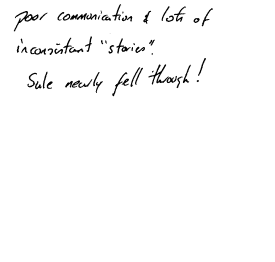 poor communication & lots of
inconsistant "stories".
Sale nearly fell through!